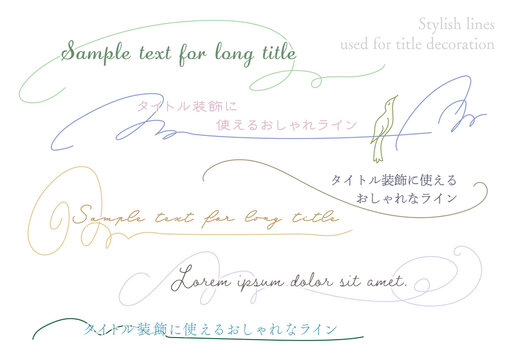 Stylish lines
used for title decoration
Sample text for long title
タイトル装飾に
使えるおしゃれライン
タイトル装飾に使える
おしゃれなライン
Sample text for long title
Lorem ipsum dolor sit amet.
タイトル装飾に使えるおしゃれなライン